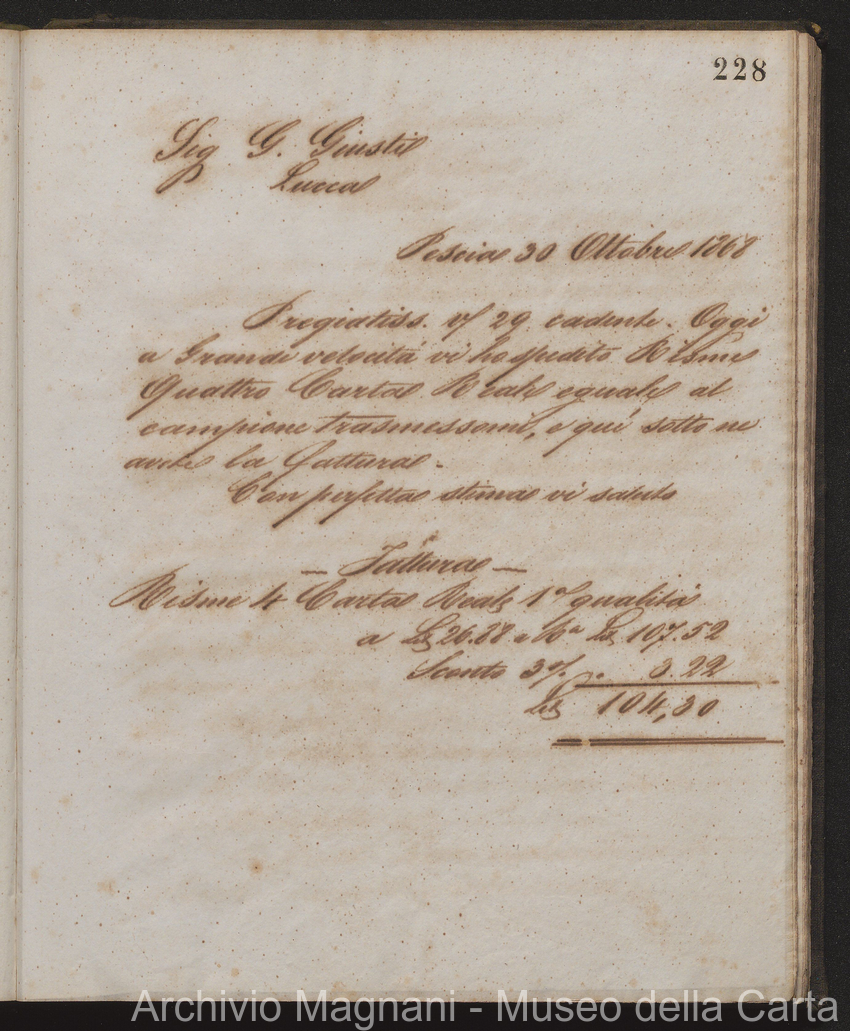 228
Sig G. Giusti
P Lucca
Pescia 30 Ottobre 1868
Pregiatiss. v/ 29 cadente. Oggi
a Grande velocità vi ho spedito Risme
Quattro Carta Reale eguale al
campione trasmessomi, e quì sotto ne
avete la fattura.
Con perfetta stima vi saluto
— Fattura —
Risme 4 Carta Reale 1a qualità
a Lt 26.88 Lt 107.52
Sconto 3% . 3.22
Lt 104,30
Archivio Magnani - Museo della Carta